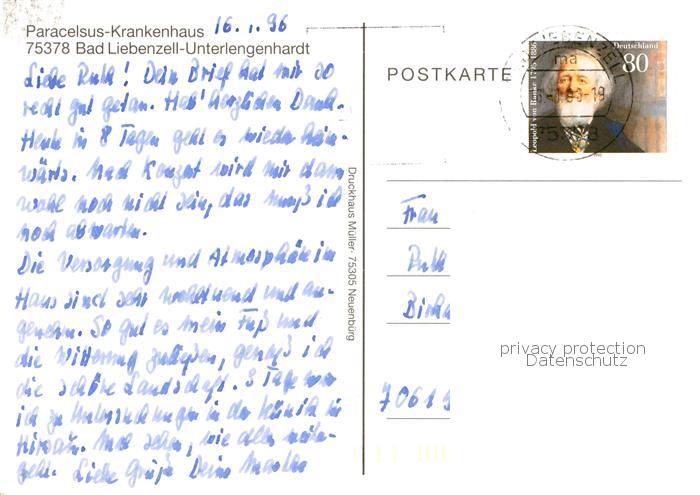 Paracelsus-Krankenhaus 16.1.96
75378 Bad Liebenzell-Unterlengenhardt
Liebe Ruth! Dein Brief hat mir so
recht gut getan. Hab' herzlichen Dank.
Heute in 8 Tagen geht es wieder heim-
wärts. Nach Konzert wird mir dann
wohl noch nicht sein, das muß ich
noch abwarten.
Die Versorgung und Atmosphäre im
Haus sind sehr wohltuend und an-
genehm. So gut es mein Fuß und
die Witterung zulassen, genieß ich
die schöne Landschaft. 3 Tage war
ich zu Untersuchungen in der Klinik in
Hirsau. Mal sehen, wie alles weiter-
geht. Liebe Grüße Deine
Druckhaus Müller · 75305 Neuenbürg
POSTKARTE
Deutschland
80
Leopold von Ranke 1795-1886
Frau
Ruth
70619
privacy protection
Datenschutz